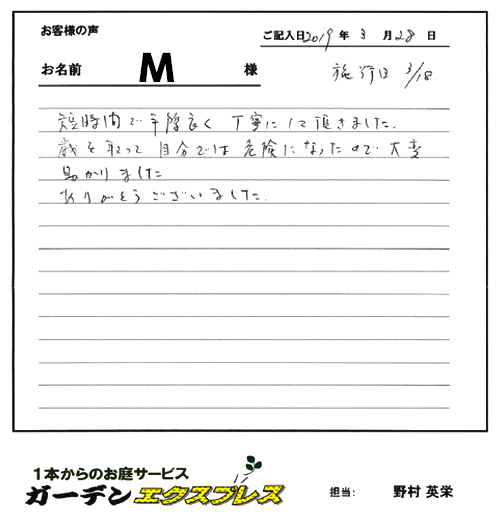 お客様の声
ご記入日2019年3月28日
お名前 M 様
施行日 3/18
短時間で手際良く丁寧にして頂きました.
歳を取って自分では危険になったので大変
助かりました
ありがとうございました.
1本からのお庭サービス
ガーデンエクスプレス
担当: 野村 英栄